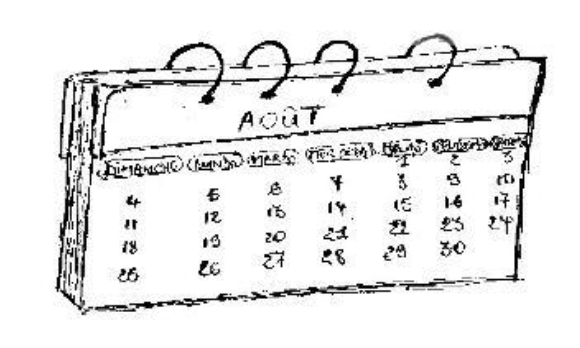 AOÛT
DIMANCHE LUNDI MARDI MERCREDI JEUDI
1 2 3
4 5 6 7 8 9 10
11 12 13 14 15 16 17
18 19 20 21 22 23 24
25 26 27 28 29 30